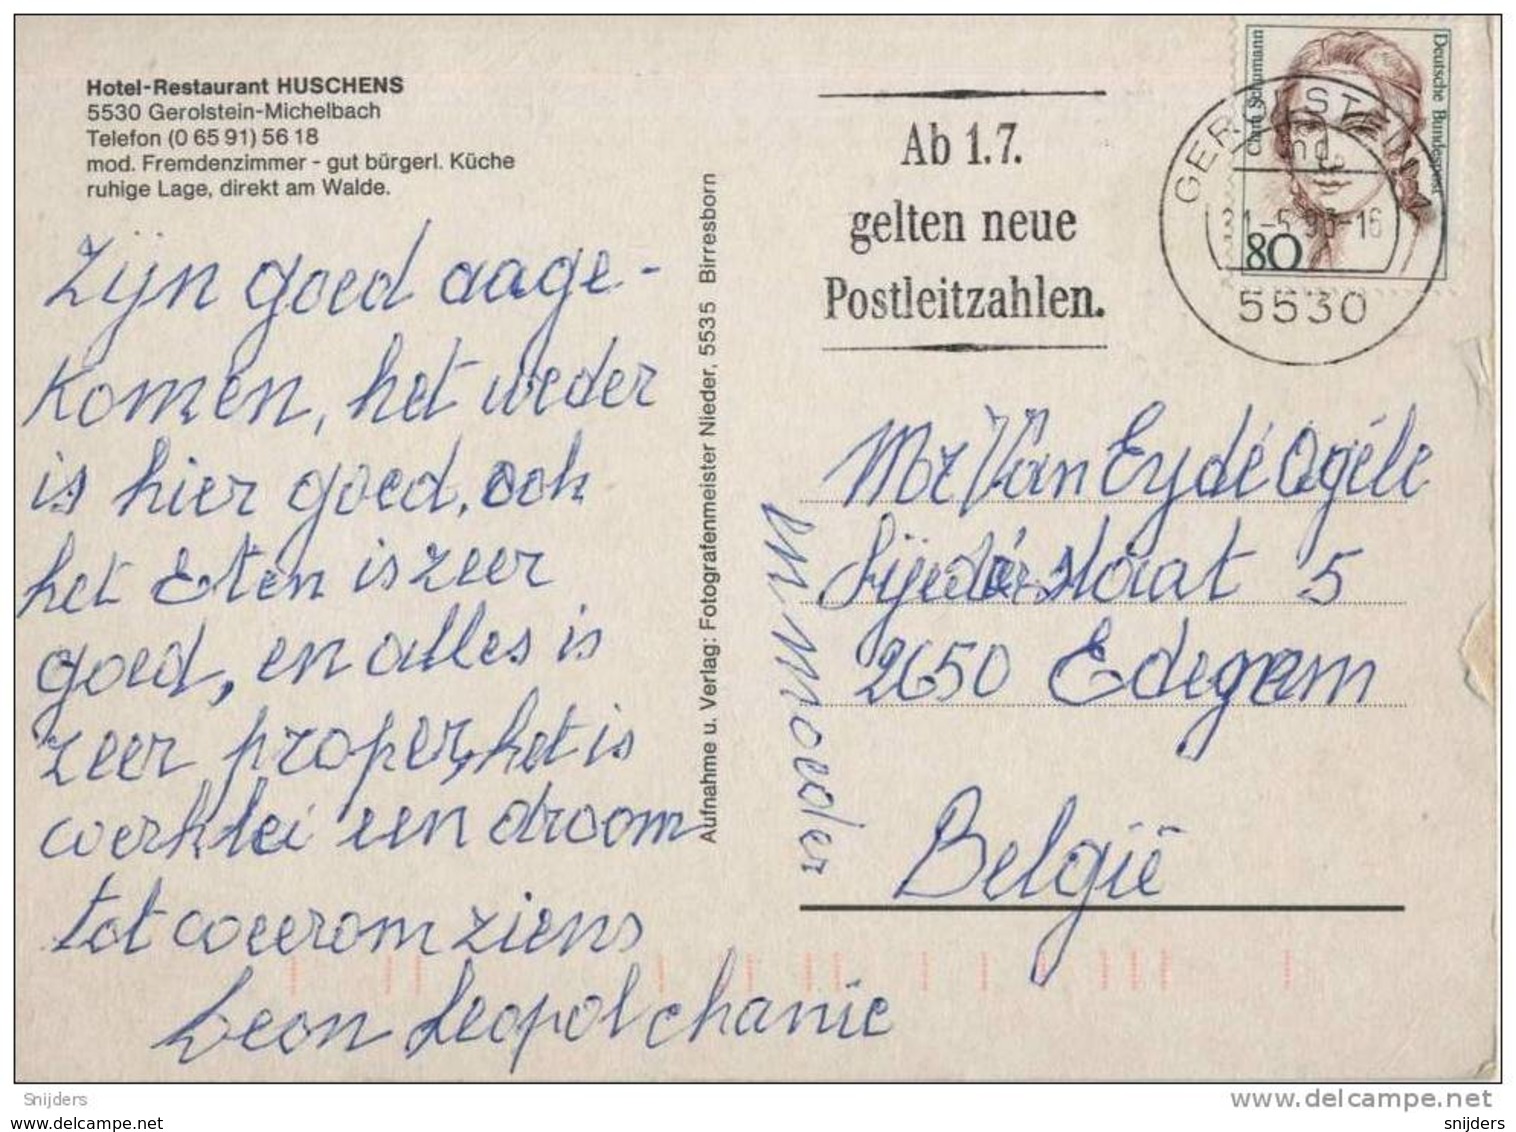 Hotel-Restaurant HUSCHENS
5530 Gerolstein-Michelbach
Telefon (0 65 91) 56 18
mod. Fremdenzimmer - gut bürgerl. Küche
ruhige Lage, direkt am Walde.
Zijn goed aage-
komen, het weder
is hier goed, ook
het Eten is zeer
goed, en alles is
zeer proper, het is
werklei een droom
tot weerom ziens
Leon Leopol chanie
Aufnahme u. Verlag: Fotografenmeister Nieder, 5535 Birresborn
Ab 1.7.
gelten neue
Postleitzahlen.
Clara Schumann
Deutsche Bundespost
80
GEROLSTEIN 1
31.-5.93-16
5530
Mr Van Eydé Ogéle
straat 5
2650 Edegem
België
en moeder
Snijders
snijders
www.delcampe.net
snijders